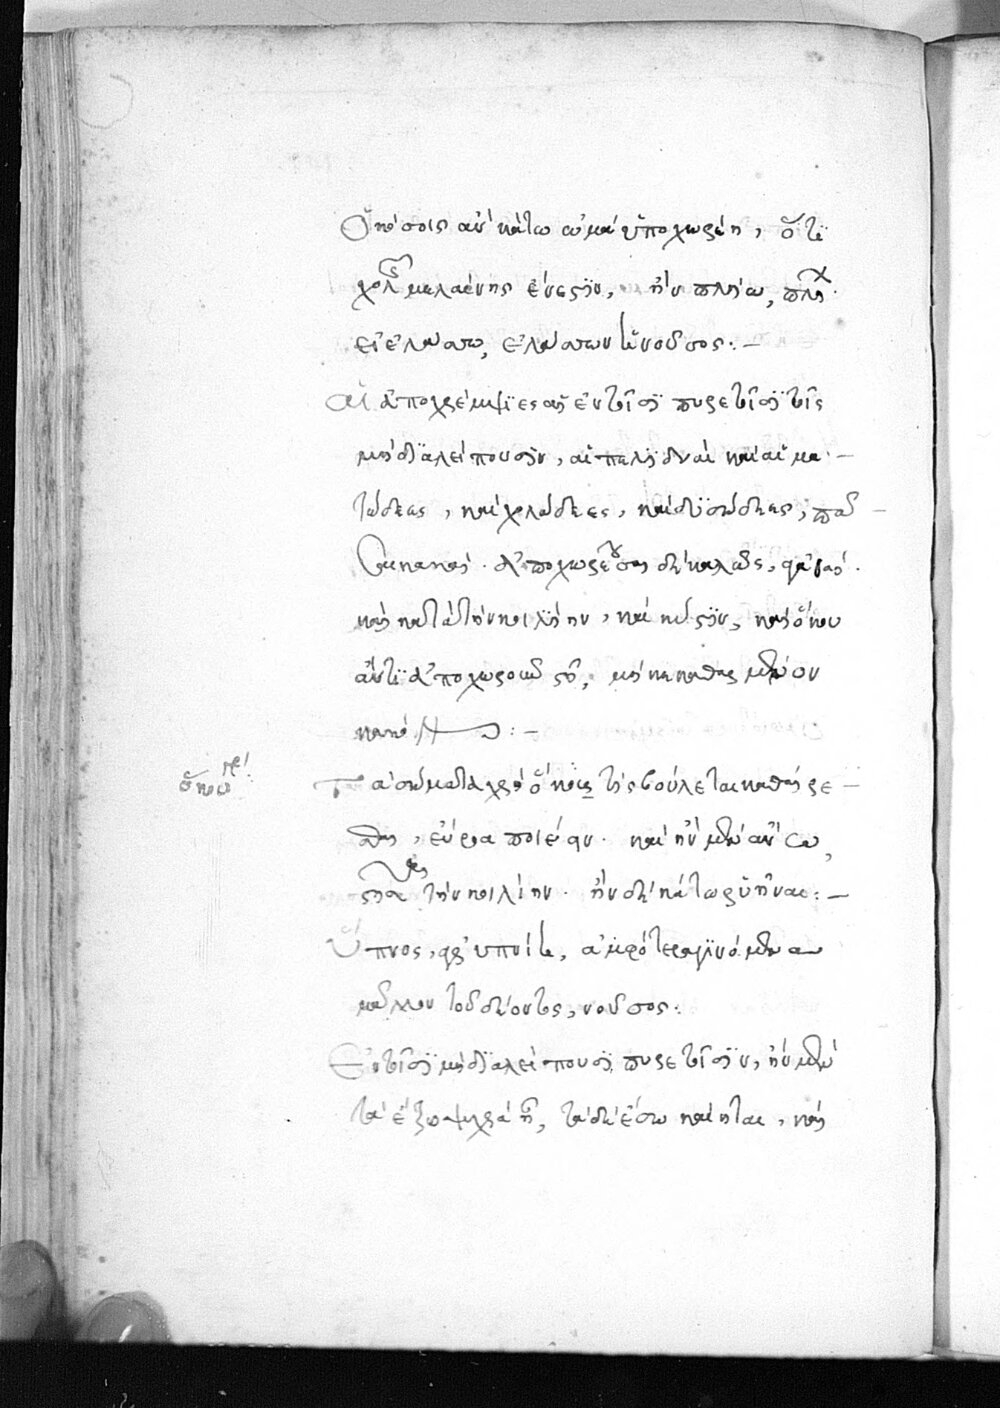 Ὁκόσοις ἂν κάτω ὠμὰ ὑποχωρέῃ, ὅτι
χολῆς μελαίνης ἐίνεστιν, ἢν πλείω, πλείων
εἰ ἐλάσσω, ἐλάσσων ἡ νοῦσος:—
Αἱ ἀποχρέμψιες αἱ ἐν τοῖσι πυρετοῖσι τοῖς
μὴ διαλείπουσιν, αἱ πελιδναὶ καὶ αἱμα—
τώδεες, καὶ χολώδεες, καὶ δυσώδεες, πᾶ—
σαι κακαί. ἀποχωρεῦσαι δὲ καλῶς, ἀγαθαί.
καὶ κατὰ τὴν κοιλίην, καὶ κύστιν, καὶ ὅκου
ἄν τι ἀποχωροῦν στῇ, μὴ κεκαθαρμένον
κακόν:—
ὅπου γρ΄
Τὰ σώματα χρὴ ὅκοις τὶς βούλεται καθαίρε—
σθαι, εὔροα ποιέειν. καὶ ἢν μὲν ἄνω,
στῆσαι τὴν κοιλίην. ἢν δὲ κάτω, ὑγρῆναι:—
Ὕπνος, ἀγρυπνίη, ἀμφότερα γινόμενα
μᾶλλον τοῦ δέοντος, νοῦσος:
Ἐν τοῖσι μὴ διαλείπουσι πυρετοῖσιν, ἢν μὲν
τὰ ἔξω ψυχρὰ ᾖ, τὰ δὲ ἔσω καίηται, καὶ